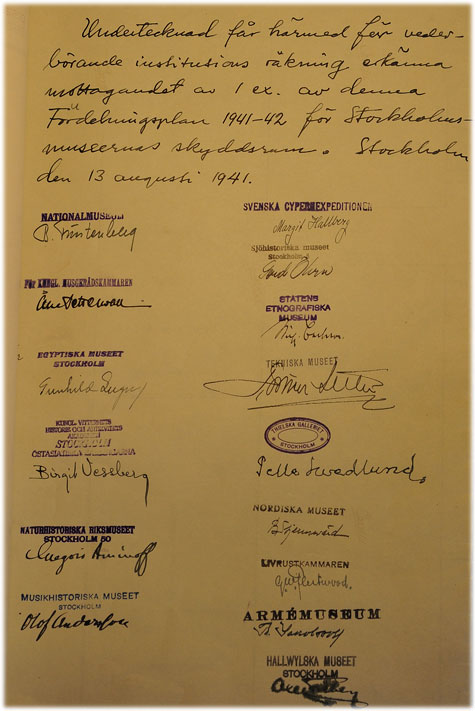 Undertecknad får härmed för veder-
börande institutions räkning erkänna
mottagandet av 1 ex. av denna
Fördelningsplan 1941-42 för Stockholms-
museernas skyddsrum. Stockholm
den 13 augusti 1941.
NATIONALMUSEUM
FÖR KUNGL. HUSGERÅDSKAMMAREN
EGYPTISKA MUSEET
STOCKHOLM
Gunhild
KUNGL. VITTERHETS
HISTORIE OCH ANTIKVITETS
AKADEMIEN
STOCKHOLM
ÖSTASIATISKA SAMLINGARNA
Birgit Vessberg
NATURHISTORISKA RIKSMUSEET
STOCKHOLM 50
Gregori Aminoff
MUSIKHISTORISKA MUSEET
STOCKHOLM
Olof Andersson
SVENSKA CYPERNEXPEDITIONEN
Margit Hallberg
Sjöhistoriska museet
Stockholm
STATENS
ETNOGRAFISKA
MUSEUM
TEKNISKA MUSEET
THIELSKA GALLERIET
STOCKHOLM
Pelle Swedlund
NORDISKA MUSEET
LIVRUSTKAMMAREN
ARMÉMUSEUM
HALLWYLSKA MUSEET
STOCKHOLM